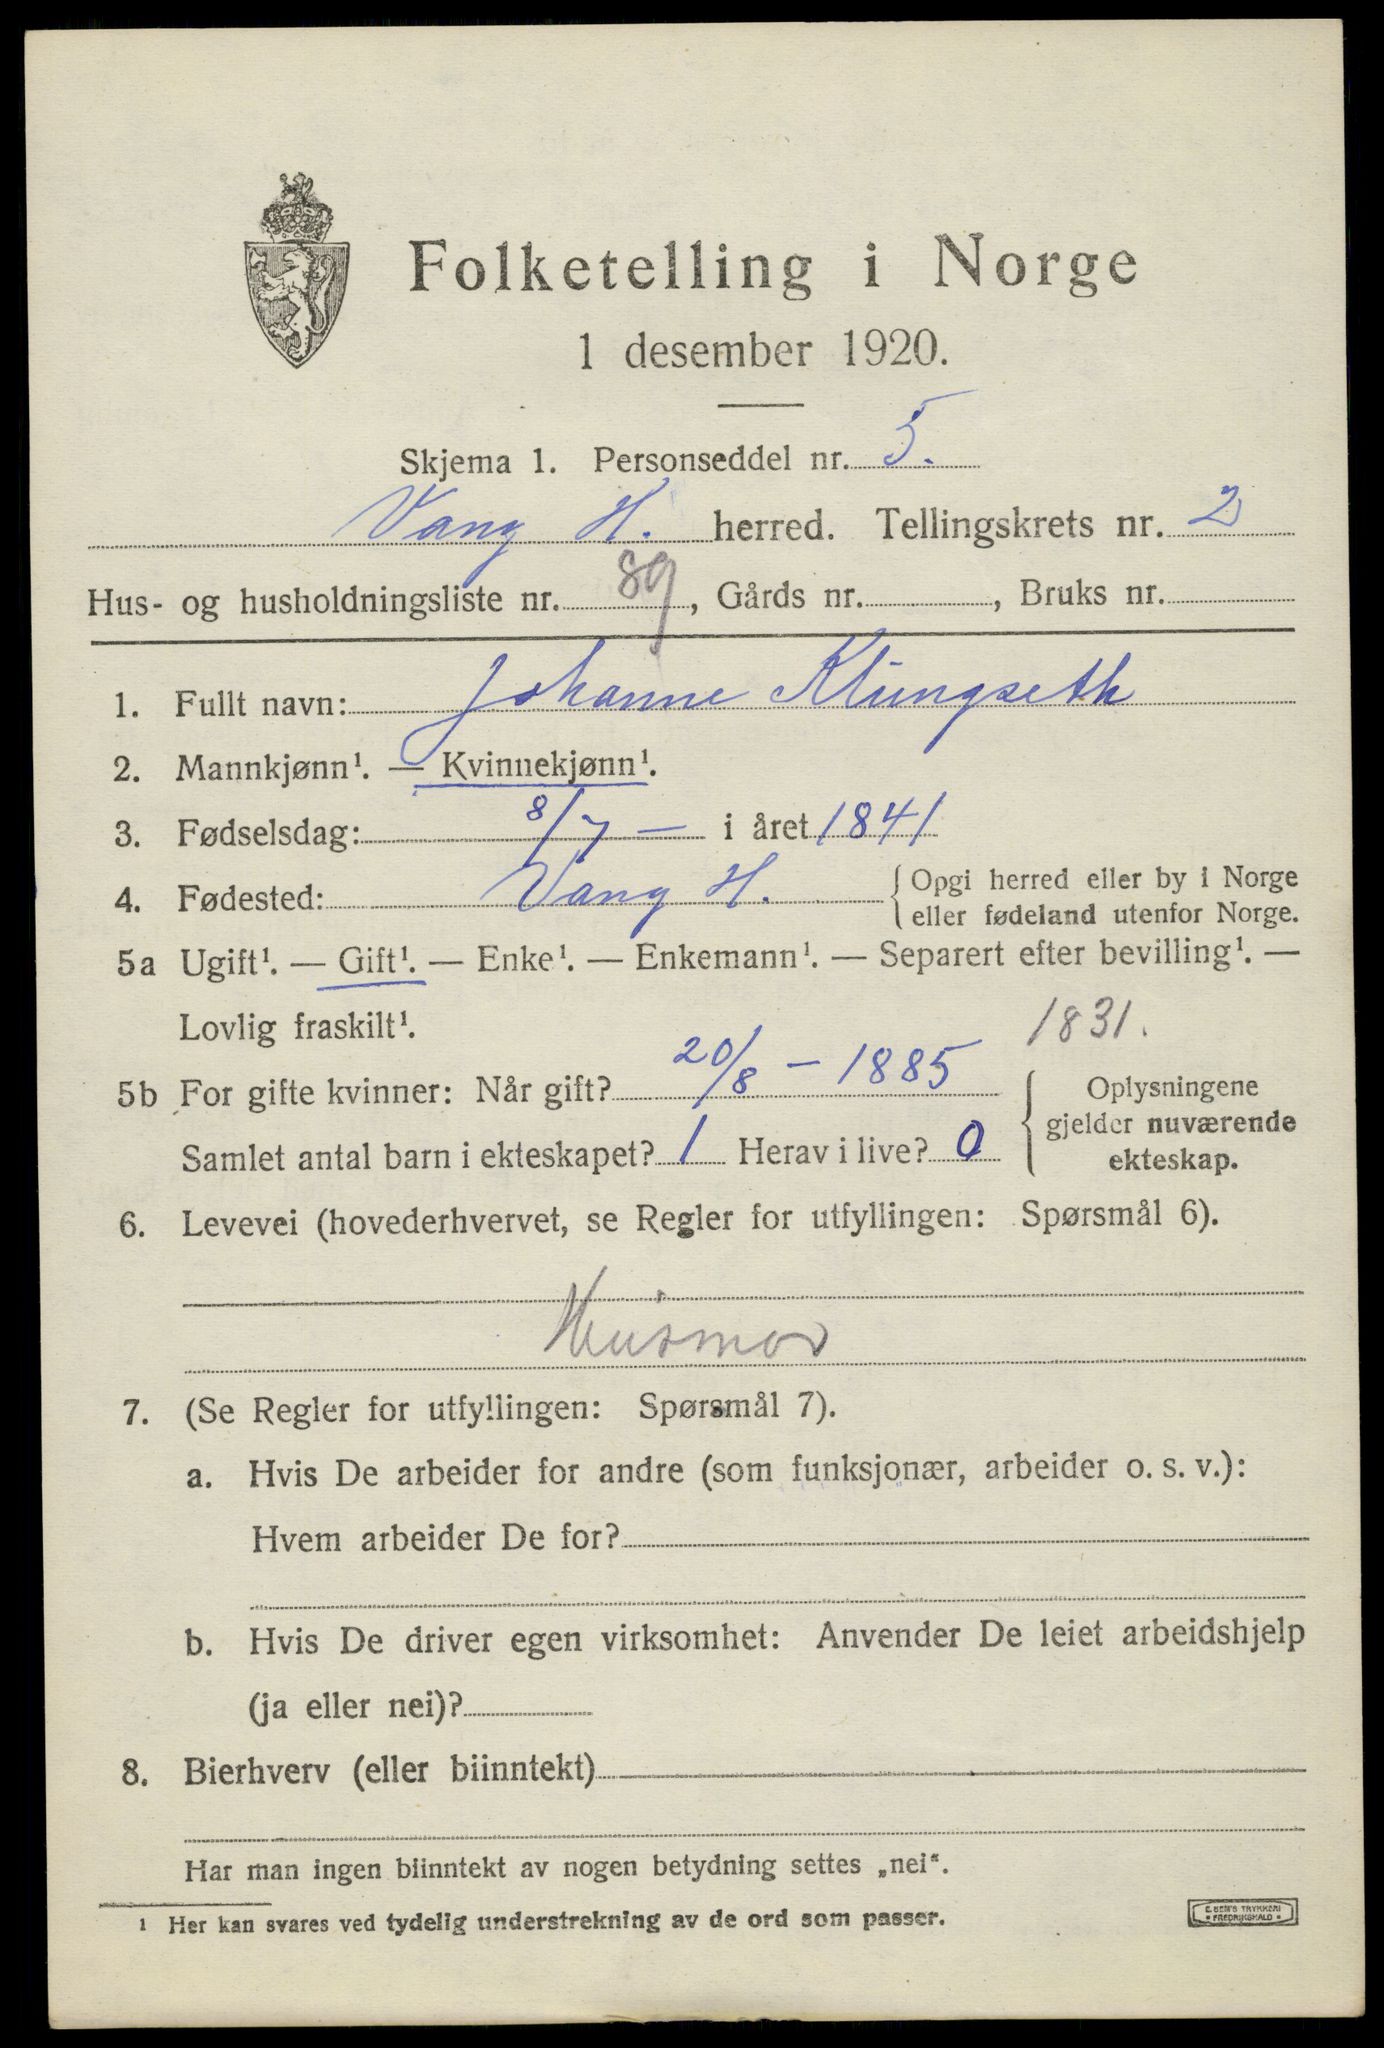 Folketelling i Norge
1 desember 1920.
Skjema 1. Personseddel nr. 5.
Vang H. herred. Tellingskrets nr. 2
Hus- og husholdningsliste nr. 89, Gårds nr. , Bruks nr.
1. Fullt navn: Johanne Klungseth
2. Mannkjønn¹. — Kvinnekjønn¹.
3. Fødselsdag: 8/7 — i året 1841
4. Fødested: Vang H. { Opgi herred eller by i Norge
eller fødeland utenfor Norge.
5a Ugift¹. — Gift¹. — Enke¹. — Enkemann¹. — Separert efter bevilling¹. —
Lovlig fraskilt¹. 1831.
5b For gifte kvinner: Når gift? 20/8 — 1885 { Oplysningene
gjelder nuværende
Samlet antal barn i ekteskapet? 1 Herav i live? 0 ekteskap.
6. Levevei (hovederhvervet, se Regler for utfyllingen: Spørsmål 6).
Husmor
7. (Se Regler for utfyllingen: Spørsmål 7).
a. Hvis De arbeider for andre (som funksjonær, arbeider o. s. v.):
Hvem arbeider De for?
b. Hvis De driver egen virksomhet: Anvender De leiet arbeidshjelp
(ja eller nei)?
8. Bierhverv (eller biinntekt)
Har man ingen biinntekt av nogen betydning settes „nei“.
¹ Her kan svares ved tydelig understrekning av de ord som passer.
E. SEM'S TRYKKERI
• FREDRIKSHALD •